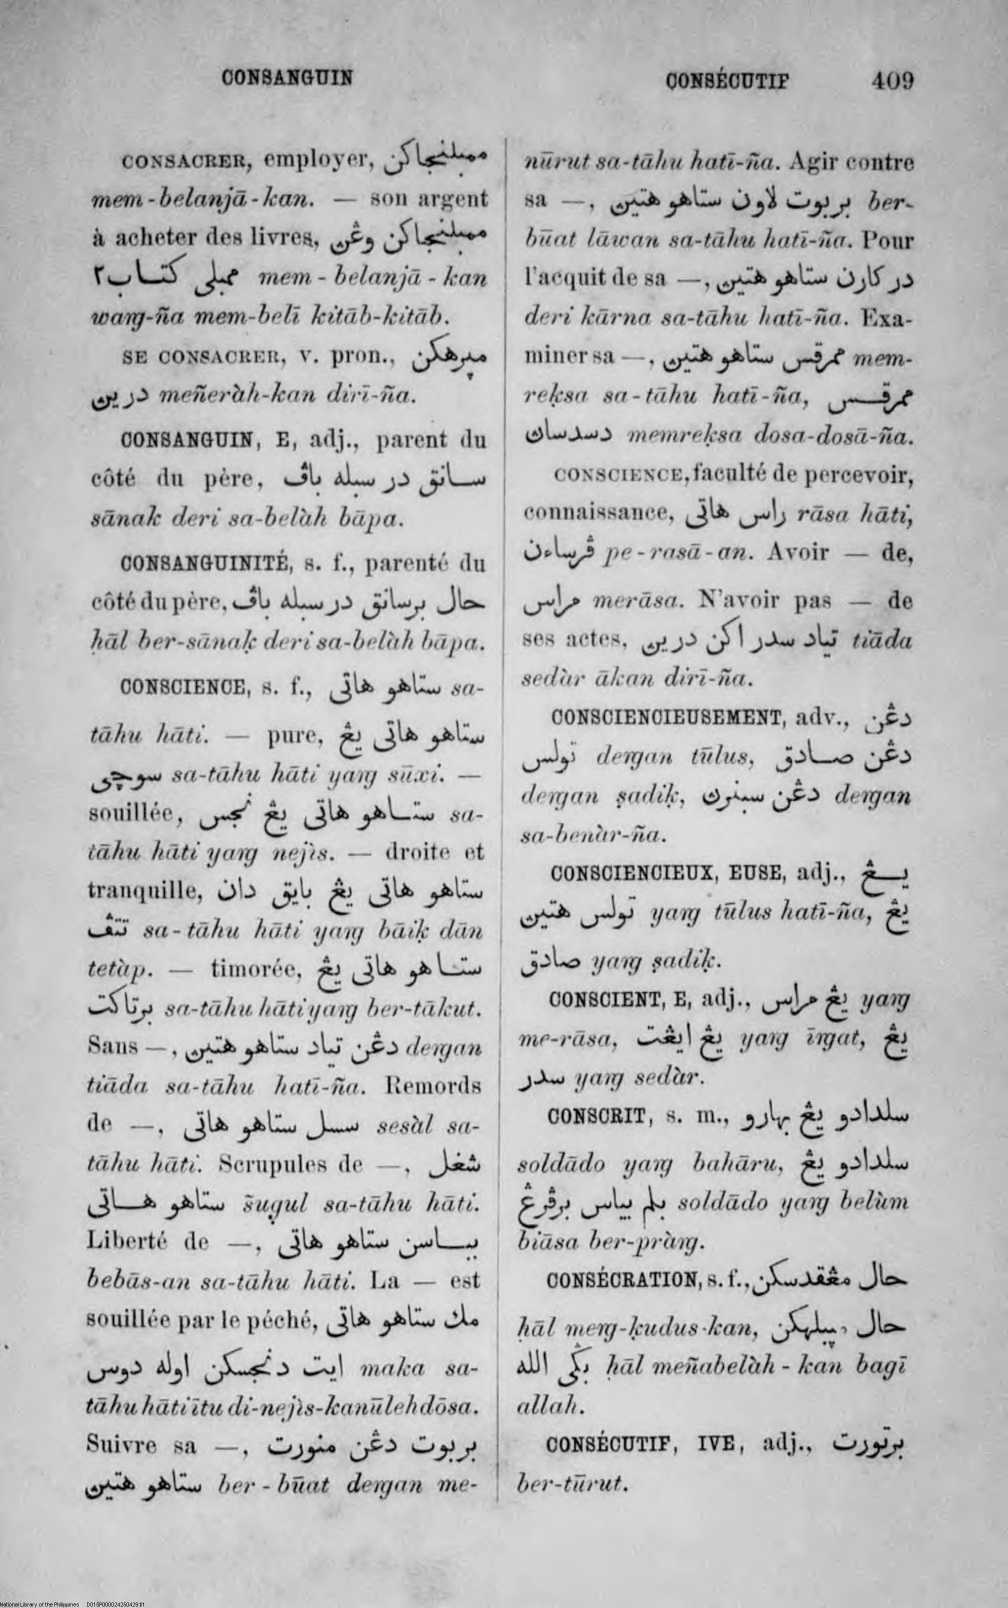 CONSANGUIN
CONSÉCUTIF 409
CONSACRER, employer, ممبلنجاكن
mem-belanjā-kan. — son argent
à acheter des livres, ممبلنجاكن وڠن
ممبلي كتاب٢ mem-belanjā-kan
waṙg-ña mem-belī kitāb-kitāb.
SE CONSACRER, v. pron., مپرهكن
درين meñeràh-kan dirī-ña.
CONSANGUIN, E, adj., parent du
côté du père, سانق در سبله باڤ
sānak deri sa-belàh bāpa.
CONSANGUINITÉ, s. f., parenté du
côté du père, حال برسانق در سبله باڤ
ḥāl ber-sānaḳ deri sa-belàh bāpa.
CONSCIENCE, s. f., ستاهو هاتي sa-
tāhu hāti. — pure, ستاهو هاتي يڠ
سوچي sa-tāhu hāti yaṙg sūxi. —
souillée, ستاهو هاتي يڠ نجس sa-
tāhu hāti yaṙg nejìs. — droite et
tranquille, ستاهو هاتي يڠ بايق دان
تتڤ sa-tāhu hāti yaṙg bāiḳ dān
tetàp. — timorée, ستاهو هاتي يڠ
برتاكت sa-tāhu hāti yaṙg ber-tākut.
Sans —, دڠن تياد ستاهو هتين deṙgan
tiāda sa-tāhu hatī-ña. Remords
de —, سسل ستاهو هاتي sesàl sa-
tāhu hāti. Scrupules de —, شغل
ستاهو هاتي šugul sa-tāhu hāti.
Liberté de —, بباسن ستاهو هاتي
bebās-an sa-tāhu hāti. La — est
souillée par le péché, مك ستاهو هاتي
ايت دنجسكن اوله دوس maka sa-
tāhu hāti ītu di-nejìs-kan ūleh dōsa.
Suivre sa —, بربوت دڠن منورت
ستاهو هتين ber-būat deṙgan me-
nūrut sa-tāhu hatī-ña. Agir contre
sa —, بربوت لاون ستاهو هتين ber-
būat lāwan sa-tāhu hatī-ña. Pour
l'acquit de sa —, در كارن ستاهو هتين
deri kārna sa-tāhu hatī-ña. Exa-
miner sa —, ممرقس ستاهو هتين mem-
reḳsa sa-tāhu hatī-ña, ممرقس
دسدسان memreḳsa dosa-dosā-ña.
CONSCIENCE, faculté de percevoir,
connaissance, راس هاتي rāsa hāti,
ڤرساءن pe-rasā-an. Avoir — de,
مراس merāsa. N'avoir pas — de
ses actes, تياد سدر اكن درين tiāda
sedàr ākan dirī-ña.
CONSCIENCIEUSEMENT, adv., دڠن
تولس deṙgan tūlus, دڠن صادق
deṙgan ṣadiḳ, دڠن سبنرن deṙgan
sa-benàr-ña.
CONSCIENCIEUX, EUSE, adj., يڠ
تولس هتين yaṙg tūlus hatī-ña, يڠ
صادق yaṙg ṣadiḳ.
CONSCIENT, E, adj., يڠ مراس yaṙg
me-rāsa, يڠ ايڠت yaṙg īṙgat, يڠ
سدر yaṙg sedàr.
CONSCRIT, s. m., سلدادو يڠ بهارو
soldādo yaṙg bahāru, سلدادو يڠ
بلم بياس برڤرڠ soldādo yaṙg belùm
biāsa ber-pràṙg.
CONSÉCRATION, s. f., حال مڠقدسكن
ḥāl meṙg-ḳudus-kan, حال مپبلهكن
بڬي الله ḥāl meñabelàh-kan bagī
allah.
CONSÉCUTIF, IVE, adj., برتورت
ber-tūrut.
National Library of the Philippines